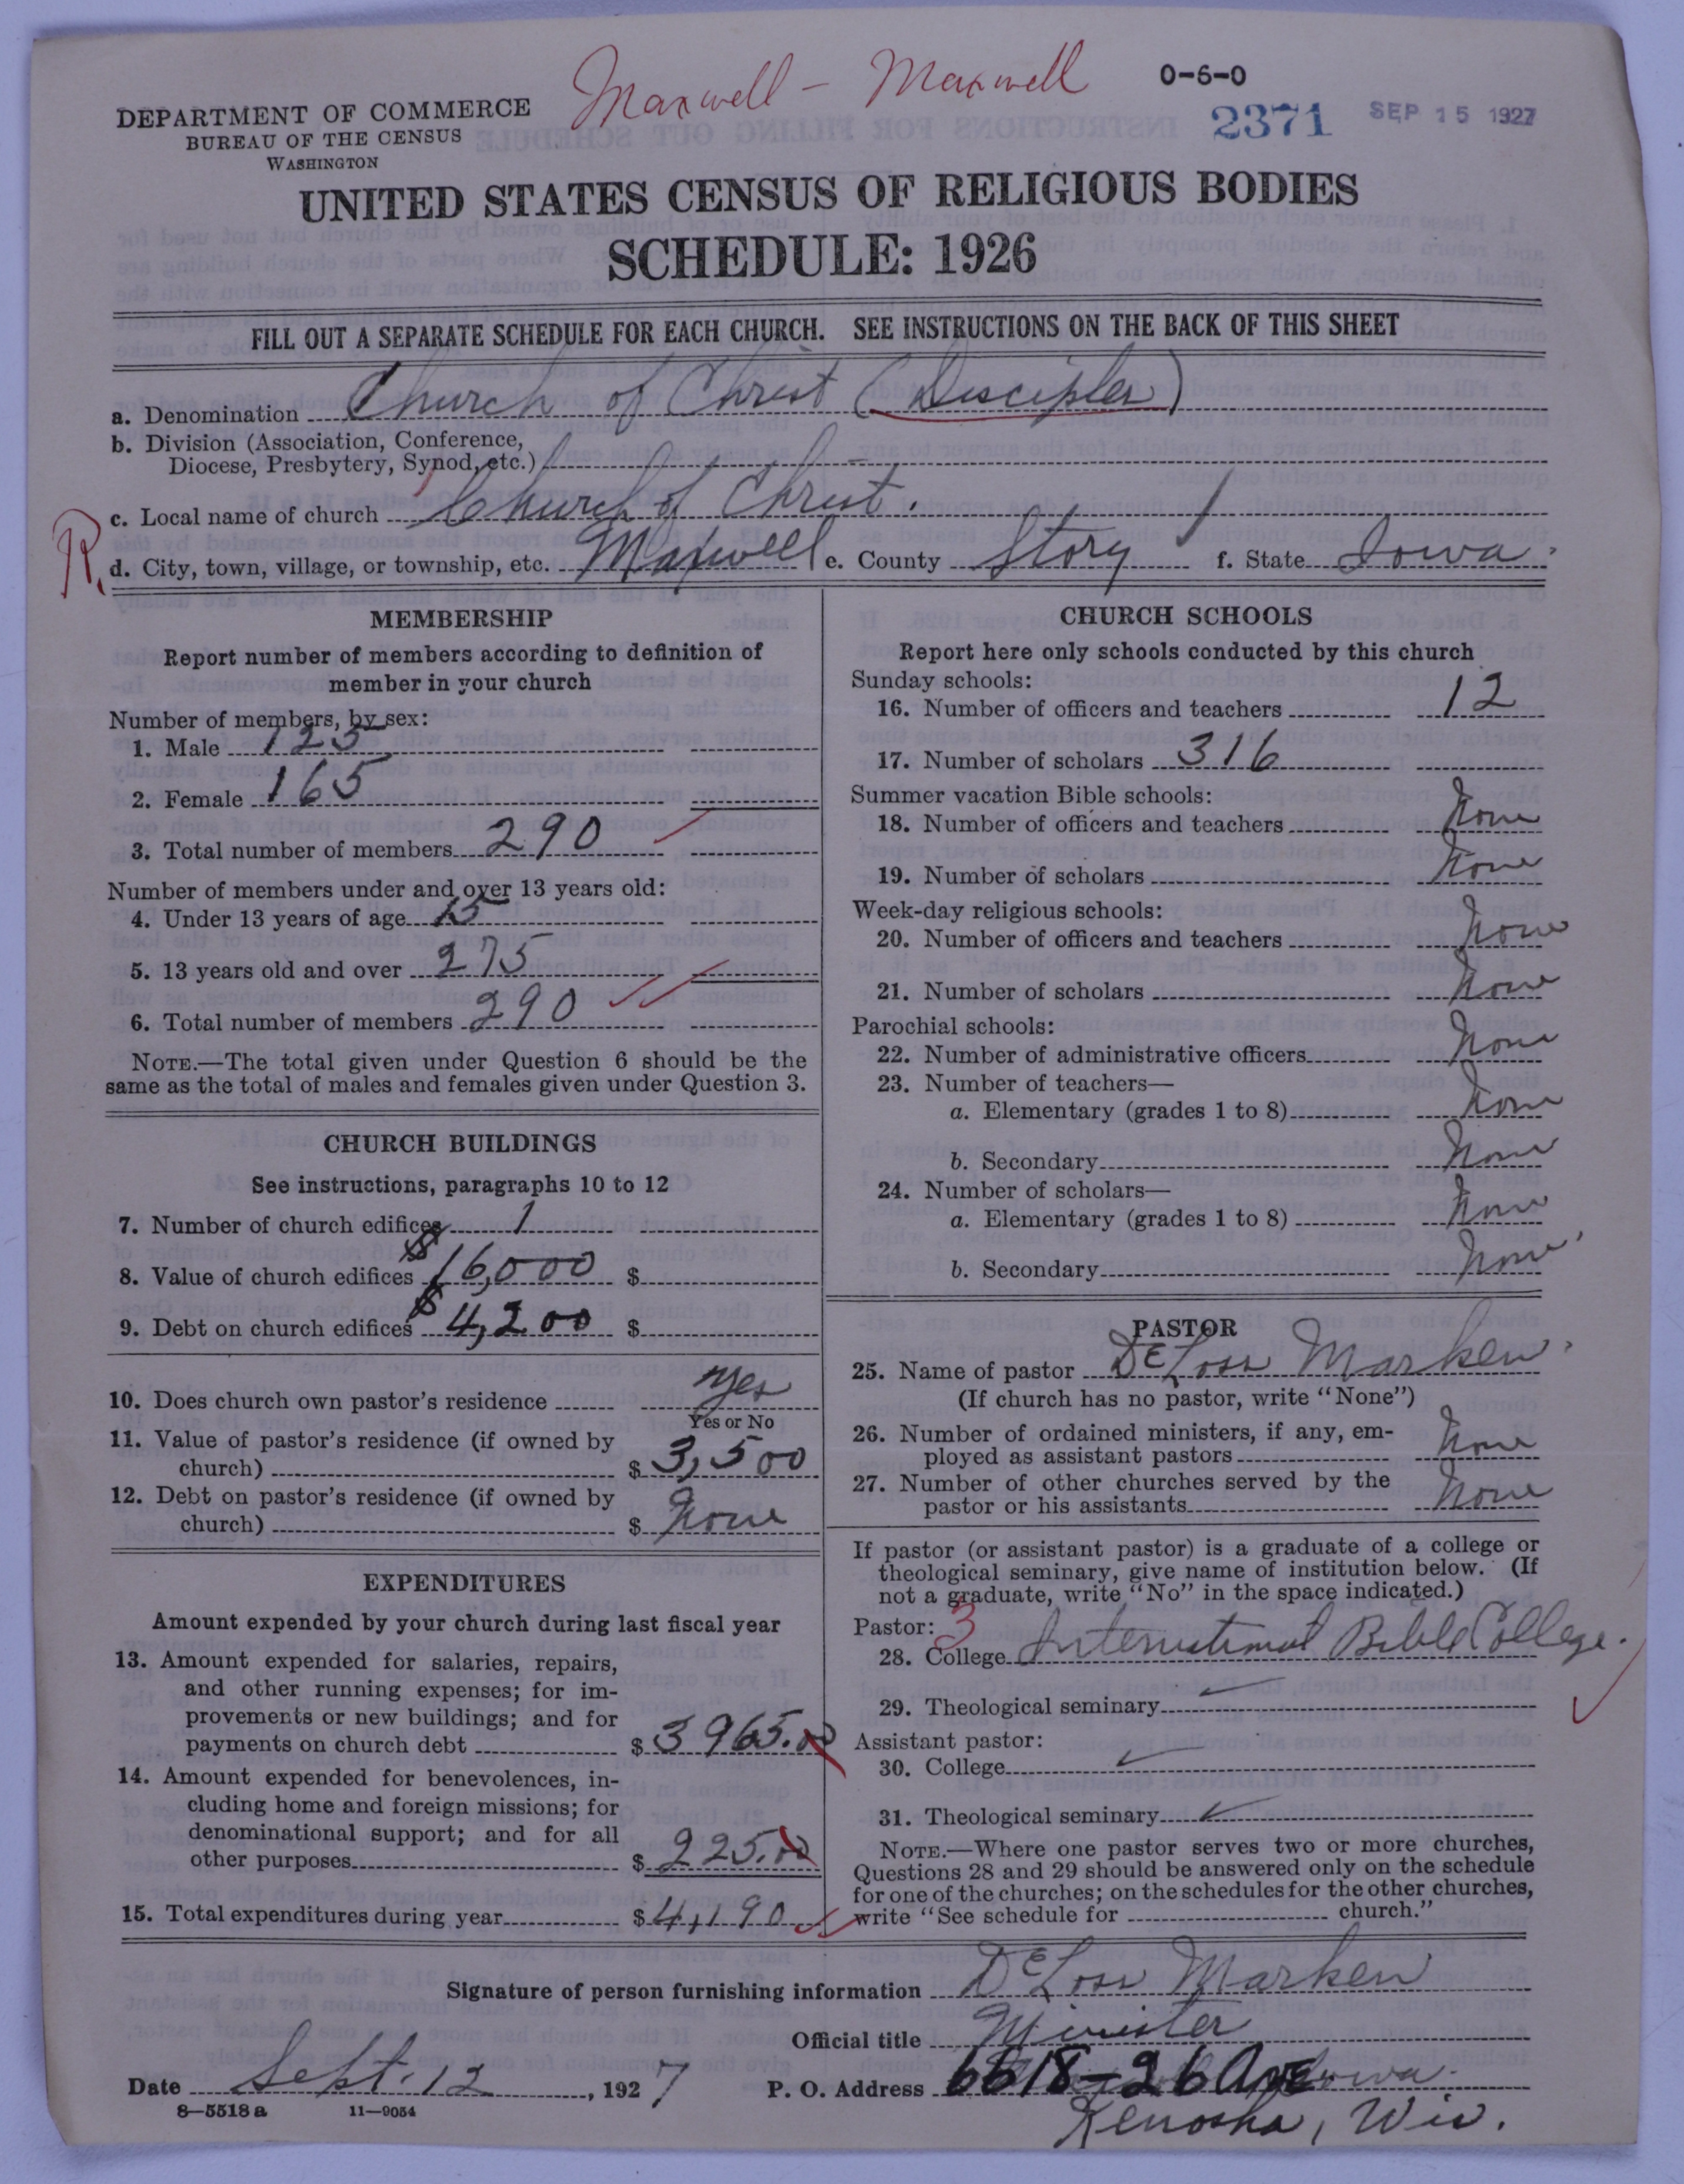 Maxwell - Maxwell
0-6-0
2371
SEP 15 1927
DEPARTMENT OF COMMERCE
BUREAU OF THE CENSUS
WASHINGTON
UNITED STATES CENSUS OF RELIGIOUS BODIES
SCHEDULE: 1926
FILL OUT A SEPARATE SCHEDULE FOR EACH CHURCH. SEE INSTRUCTIONS ON THE BACK OF THIS SHEET
a. Denomination Church of Christ (Disciples)
b. Division (Association, Conference,
Diocese, Presbytery, Synod, etc.)
c. Local name of church Church of Christ.
R. d. City, town, village, or township, etc. Maxwell e. County Story f. State Iowa.
MEMBERSHIP
Report number of members according to definition of
member in your church
Number of members, by sex:
1. Male 125
2. Female 165
3. Total number of members 290
Number of members under and over 13 years old:
4. Under 13 years of age 15
5. 13 years old and over 275
6. Total number of members 290
NOTE.—The total given under Question 6 should be the
same as the total of males and females given under Question 3.
CHURCH BUILDINGS
See instructions, paragraphs 10 to 12
7. Number of church edifices 1
8. Value of church edifices $16,000 $
9. Debt on church edifices $4,200 $
10. Does church own pastor's residence Yes
Yes or No
11. Value of pastor's residence (if owned by
church) $ 3,500
12. Debt on pastor's residence (if owned by
church) $ None
EXPENDITURES
Amount expended by your church during last fiscal year
13. Amount expended for salaries, repairs,
and other running expenses; for im-
provements or new buildings; and for
payments on church debt $ 3965.00
14. Amount expended for benevolences, in-
cluding home and foreign missions; for
denominational support; and for all
other purposes $ 225.00
15. Total expenditures during year $ 4,190
CHURCH SCHOOLS
Report here only schools conducted by this church
Sunday schools:
16. Number of officers and teachers 12
17. Number of scholars 316
Summer vacation Bible schools:
18. Number of officers and teachers None
19. Number of scholars None
Week-day religious schools:
20. Number of officers and teachers None
21. Number of scholars None
Parochial schools:
22. Number of administrative officers None
23. Number of teachers—
a. Elementary (grades 1 to 8) None
b. Secondary None
24. Number of scholars—
a. Elementary (grades 1 to 8) None
b. Secondary None
PASTOR
25. Name of pastor DeLoss Marken.
(If church has no pastor, write "None")
26. Number of ordained ministers, if any, em-
ployed as assistant pastors None
27. Number of other churches served by the
pastor or his assistants None
If pastor (or assistant pastor) is a graduate of a college or
theological seminary, give name of institution below. (If
not a graduate, write "No" in the space indicated.)
Pastor: 3
28. College International Bible College.
29. Theological seminary
Assistant pastor:
30. College
31. Theological seminary
NOTE.—Where one pastor serves two or more churches,
Questions 28 and 29 should be answered only on the schedule
for one of the churches; on the schedules for the other churches,
write "See schedule for church."
Signature of person furnishing information DeLoss Marken
Official title Minister
Date Sept. 12, 1927 P. O. Address 6618-26 Ave Iowa.
Kenosha, Wis.
8-5518 a 11-9054